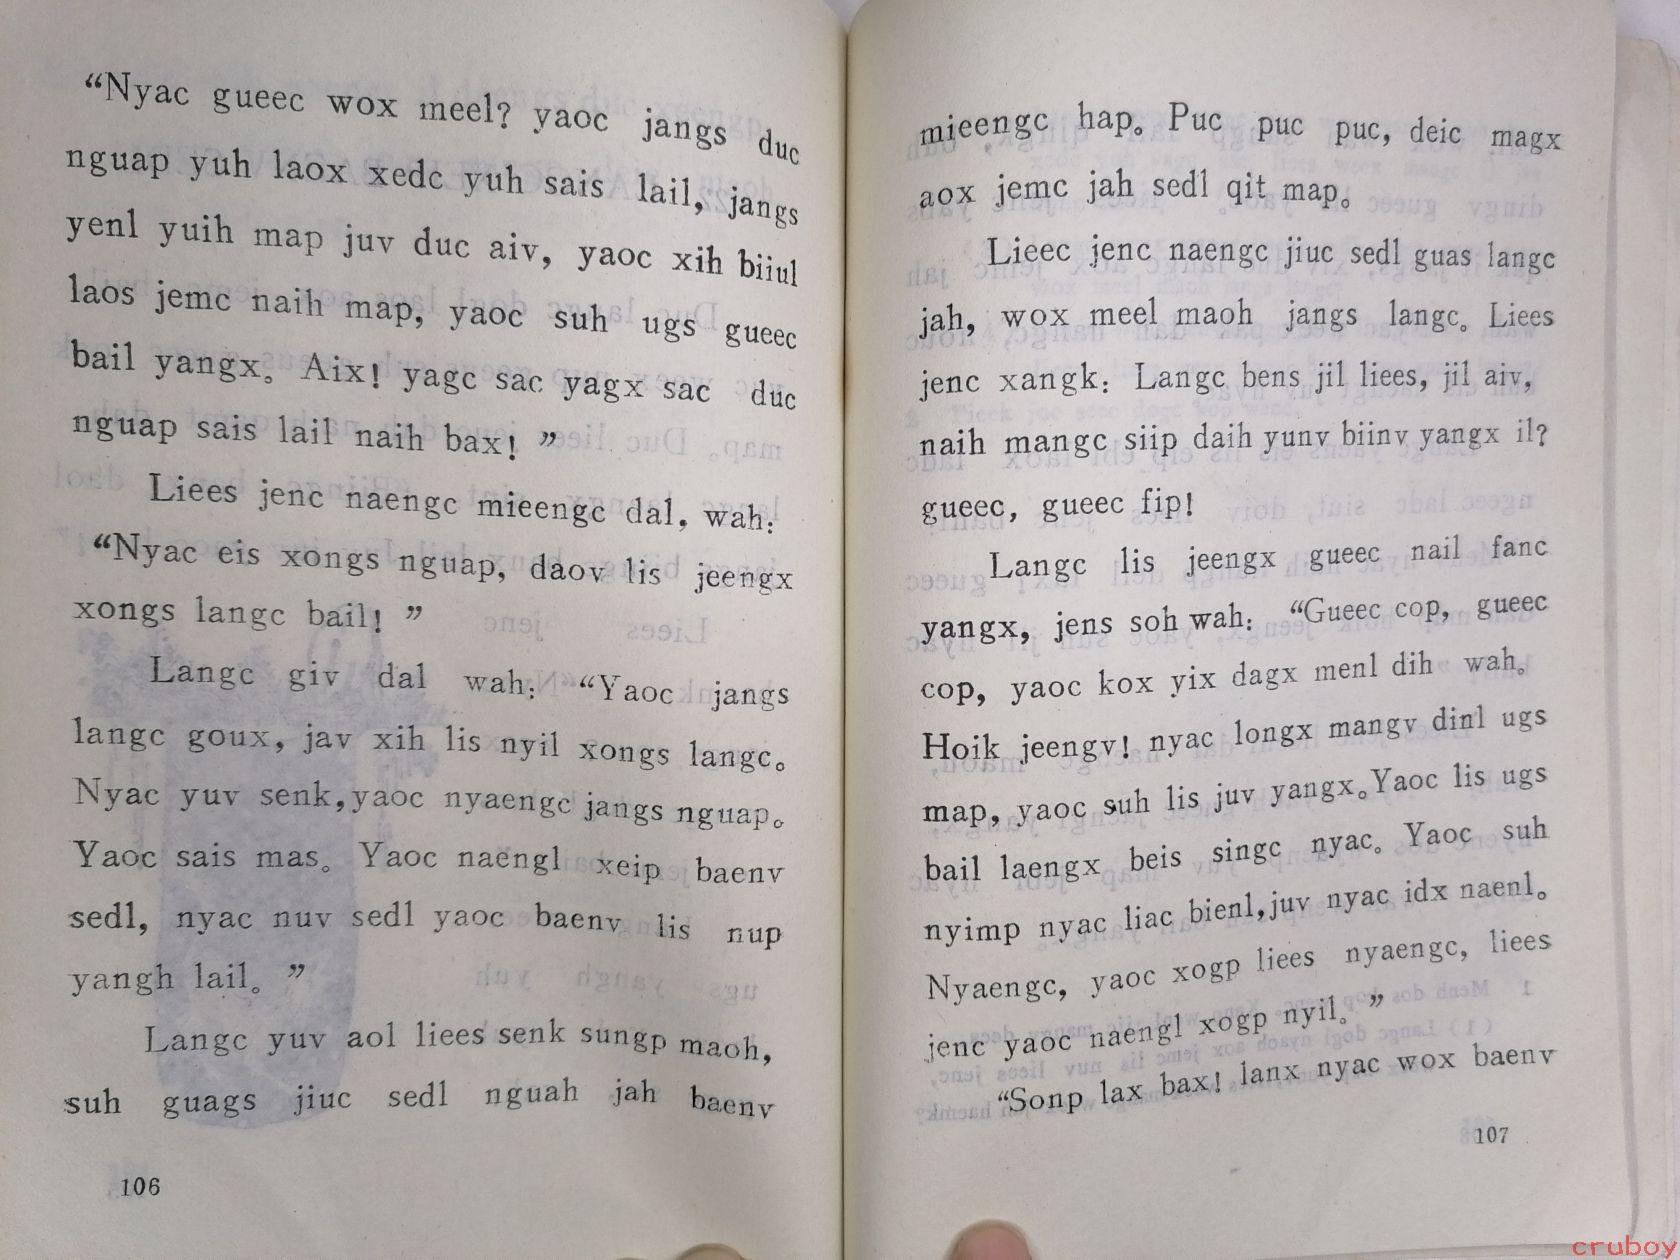 “Nyac gueec wox meel? yaoc jangs duc
nguap yuh laox xedc yuh sais lail, jangs
yenl yuih map juv duc aiv, yaoc xih biiul
laos jemc naih map, yaoc suh ugs gueec
bail yangx。 Aix! yagc sac yagx sac duc
nguap sais lail naih bax! ”
Liees jenc naengc mieengc dal, wah:
“Nyac eis xongs nguap, daov lis jeengx
xongs langc bail! ”
Langc giv dal wah: “Yaoc jangs
langc goux, jav xih lis nyil xongs langc。
Nyac yuv senk, yaoc nyaengc jangs nguap。
Yaoc sais mas。 Yaoc naengl xeip baenv
sedl, nyac nuv sedl yaoc baenv lis nup
yangh lail。 ”
Langc yuv aol liees senk sungp maoh,
suh guags jiuc sedl nguah jah baenv
106
mieengc hap。 Puc puc puc, deic magx
aox jemc jah sedl qit map。
Lieec jenc naengc jiuc sedl guas langc
jah, wox meel maoh jangs langc。 Liees
jenc xangk: Langc bens jil liees, jil aiv,
naih mangc siip daih yunv biinv yangx il?
gueec, gueec fip!
Langc lis jeengx gueec nail fanc
yangx, jens soh wah: “Gueec cop, gueec
cop, yaoc kox yix dagx menl dih wah。
Hoik jeengv! nyac longx mangv dinl ugs
map, yaoc suh lis juv yangx。Yaoc lis ugs
bail laengx beis singc nyac。 Yaoc suh
nyimp nyac liac bienl, juv nyac idx naenl。
Nyaengc, yaoc xogp liees nyaengc, liees
jenc yaoc naengl xogp nyil。 ”
“Sonp lax bax! lanx nyac wox baenv
107
cruboy